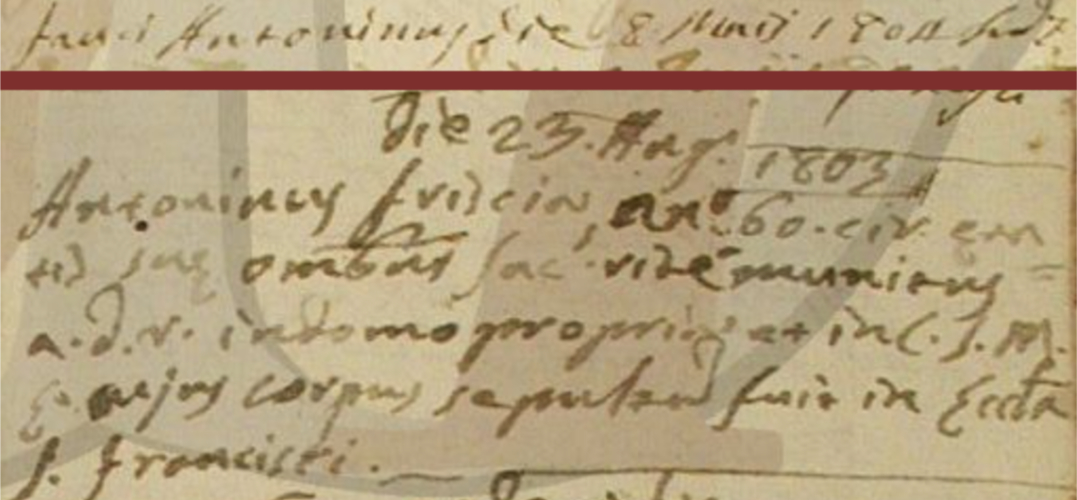 Antoninus die 8 Maij 1804
die 23. Aug. 1803
Antoninus Friscia, an: 60. cir. eta
tis sue ombus sac. rite munitus
a.d.r. in domo propria et in C. S. M.
E. cujus corpus sepultu fuit in Eccla
S. Francisci.